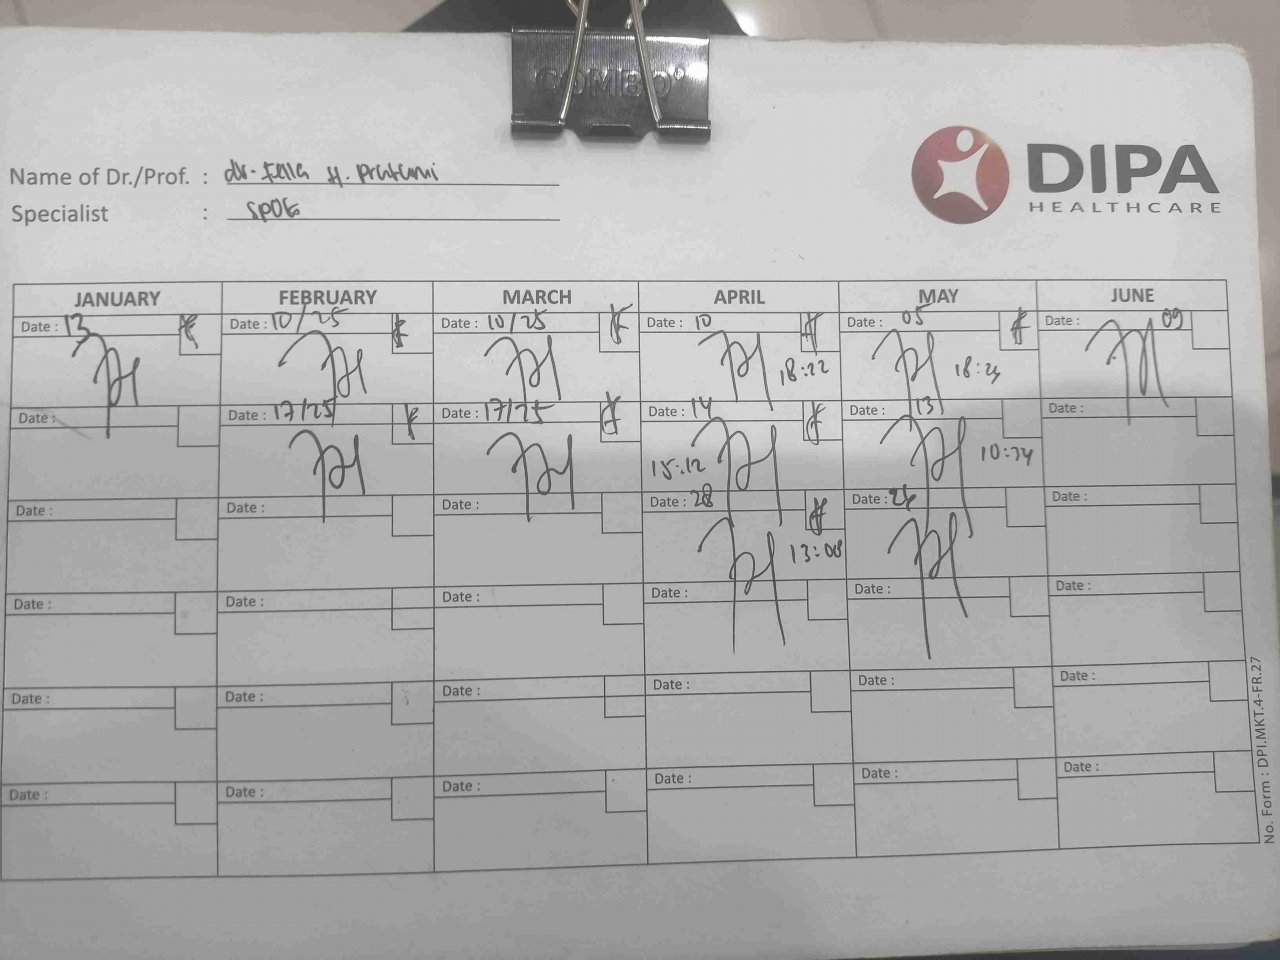 COMBO
DIPA
HEALTHCARE
Name of Dr./Prof. : dr. Fella H. Pratami
Specialist : SPOG
JANUARY FEBRUARY MARCH APRIL MAY JUNE
Date : 13 Date : 10/25 Date : 10/25 Date : 10 Date : 05 Date : 09
18:22
Date : Date : 17/25 Date : 17/25 Date : 14 Date : 13 Date :
15:12 10:34
Date : Date : Date : Date : 28 Date : 26 Date :
13:08
Date : Date : Date : Date : Date : Date :
Date : Date : Date : Date : Date : Date :
Date : Date : Date : Date : Date : Date :
No. Form : DPI.MKT.4-FR.27